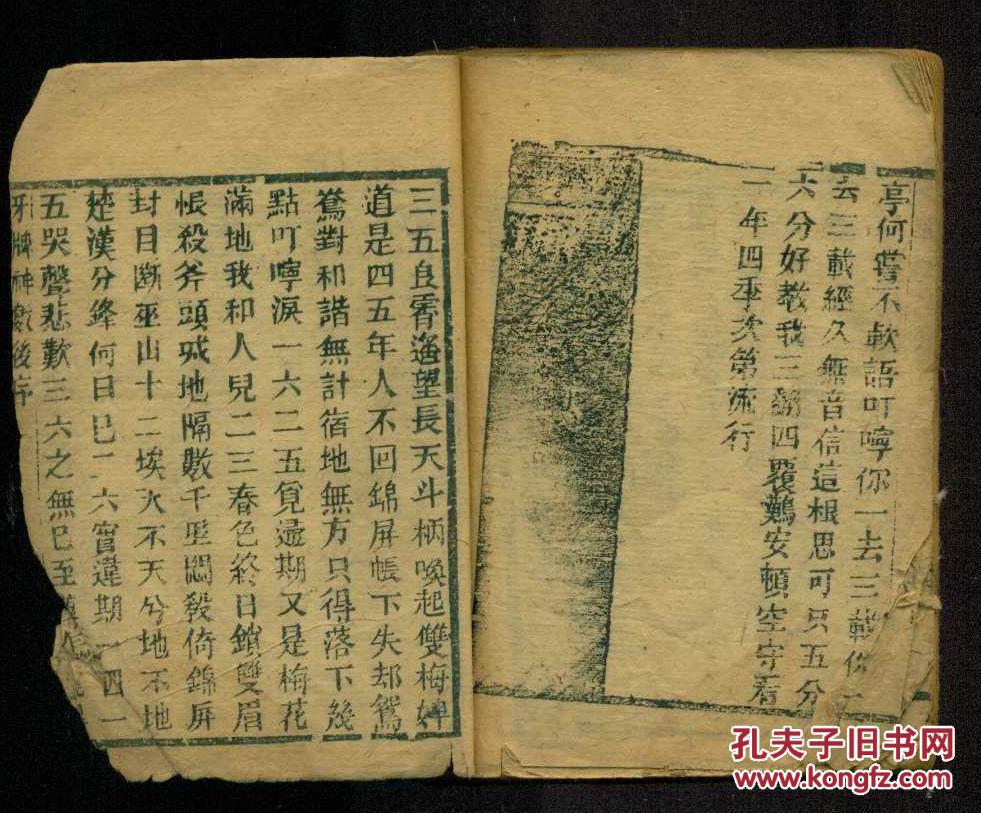 亭何嘗不軟語叮嚀你一去三載你一
去三載經久無音信這根思可只五分
六分好教我三翻四覆難安頓空守着
一年四季次第流行
三五良霄遙望長天斗柄喚起雙梅婢
道是四五年人不回錦屏帳下失却鴛
鴦對和諧無計宿地無方只得落下幾
點叮嚀淚一六二五覓盪期又是梅花
滿地我和人兒二三春色終日鎖雙眉
悵殺斧頭城地隔數千里悶殺倚錦屏
封目斷巫山十二埃火不天兮地不地
楚漢分鋒何日已一六會違期一四一
五哭聲悲歎三六之無已至
牙牌神數後序
孔夫子旧书网
www.kongfz.com